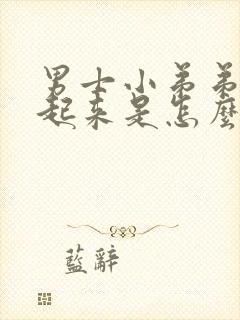 男士小弟弟
起来是怎麼
藍辭